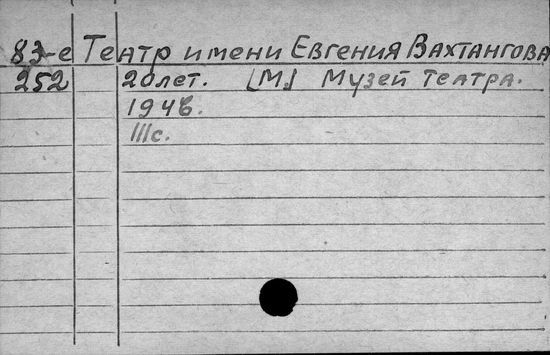 83-е Театр имени Евгения Вахтангова
252 20 лет. [М.] Музей театра.
1946.
111с.